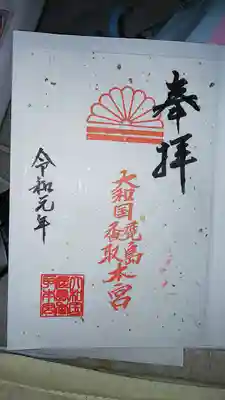 奉拝
大和国鹿島
香取本宮
令和元年